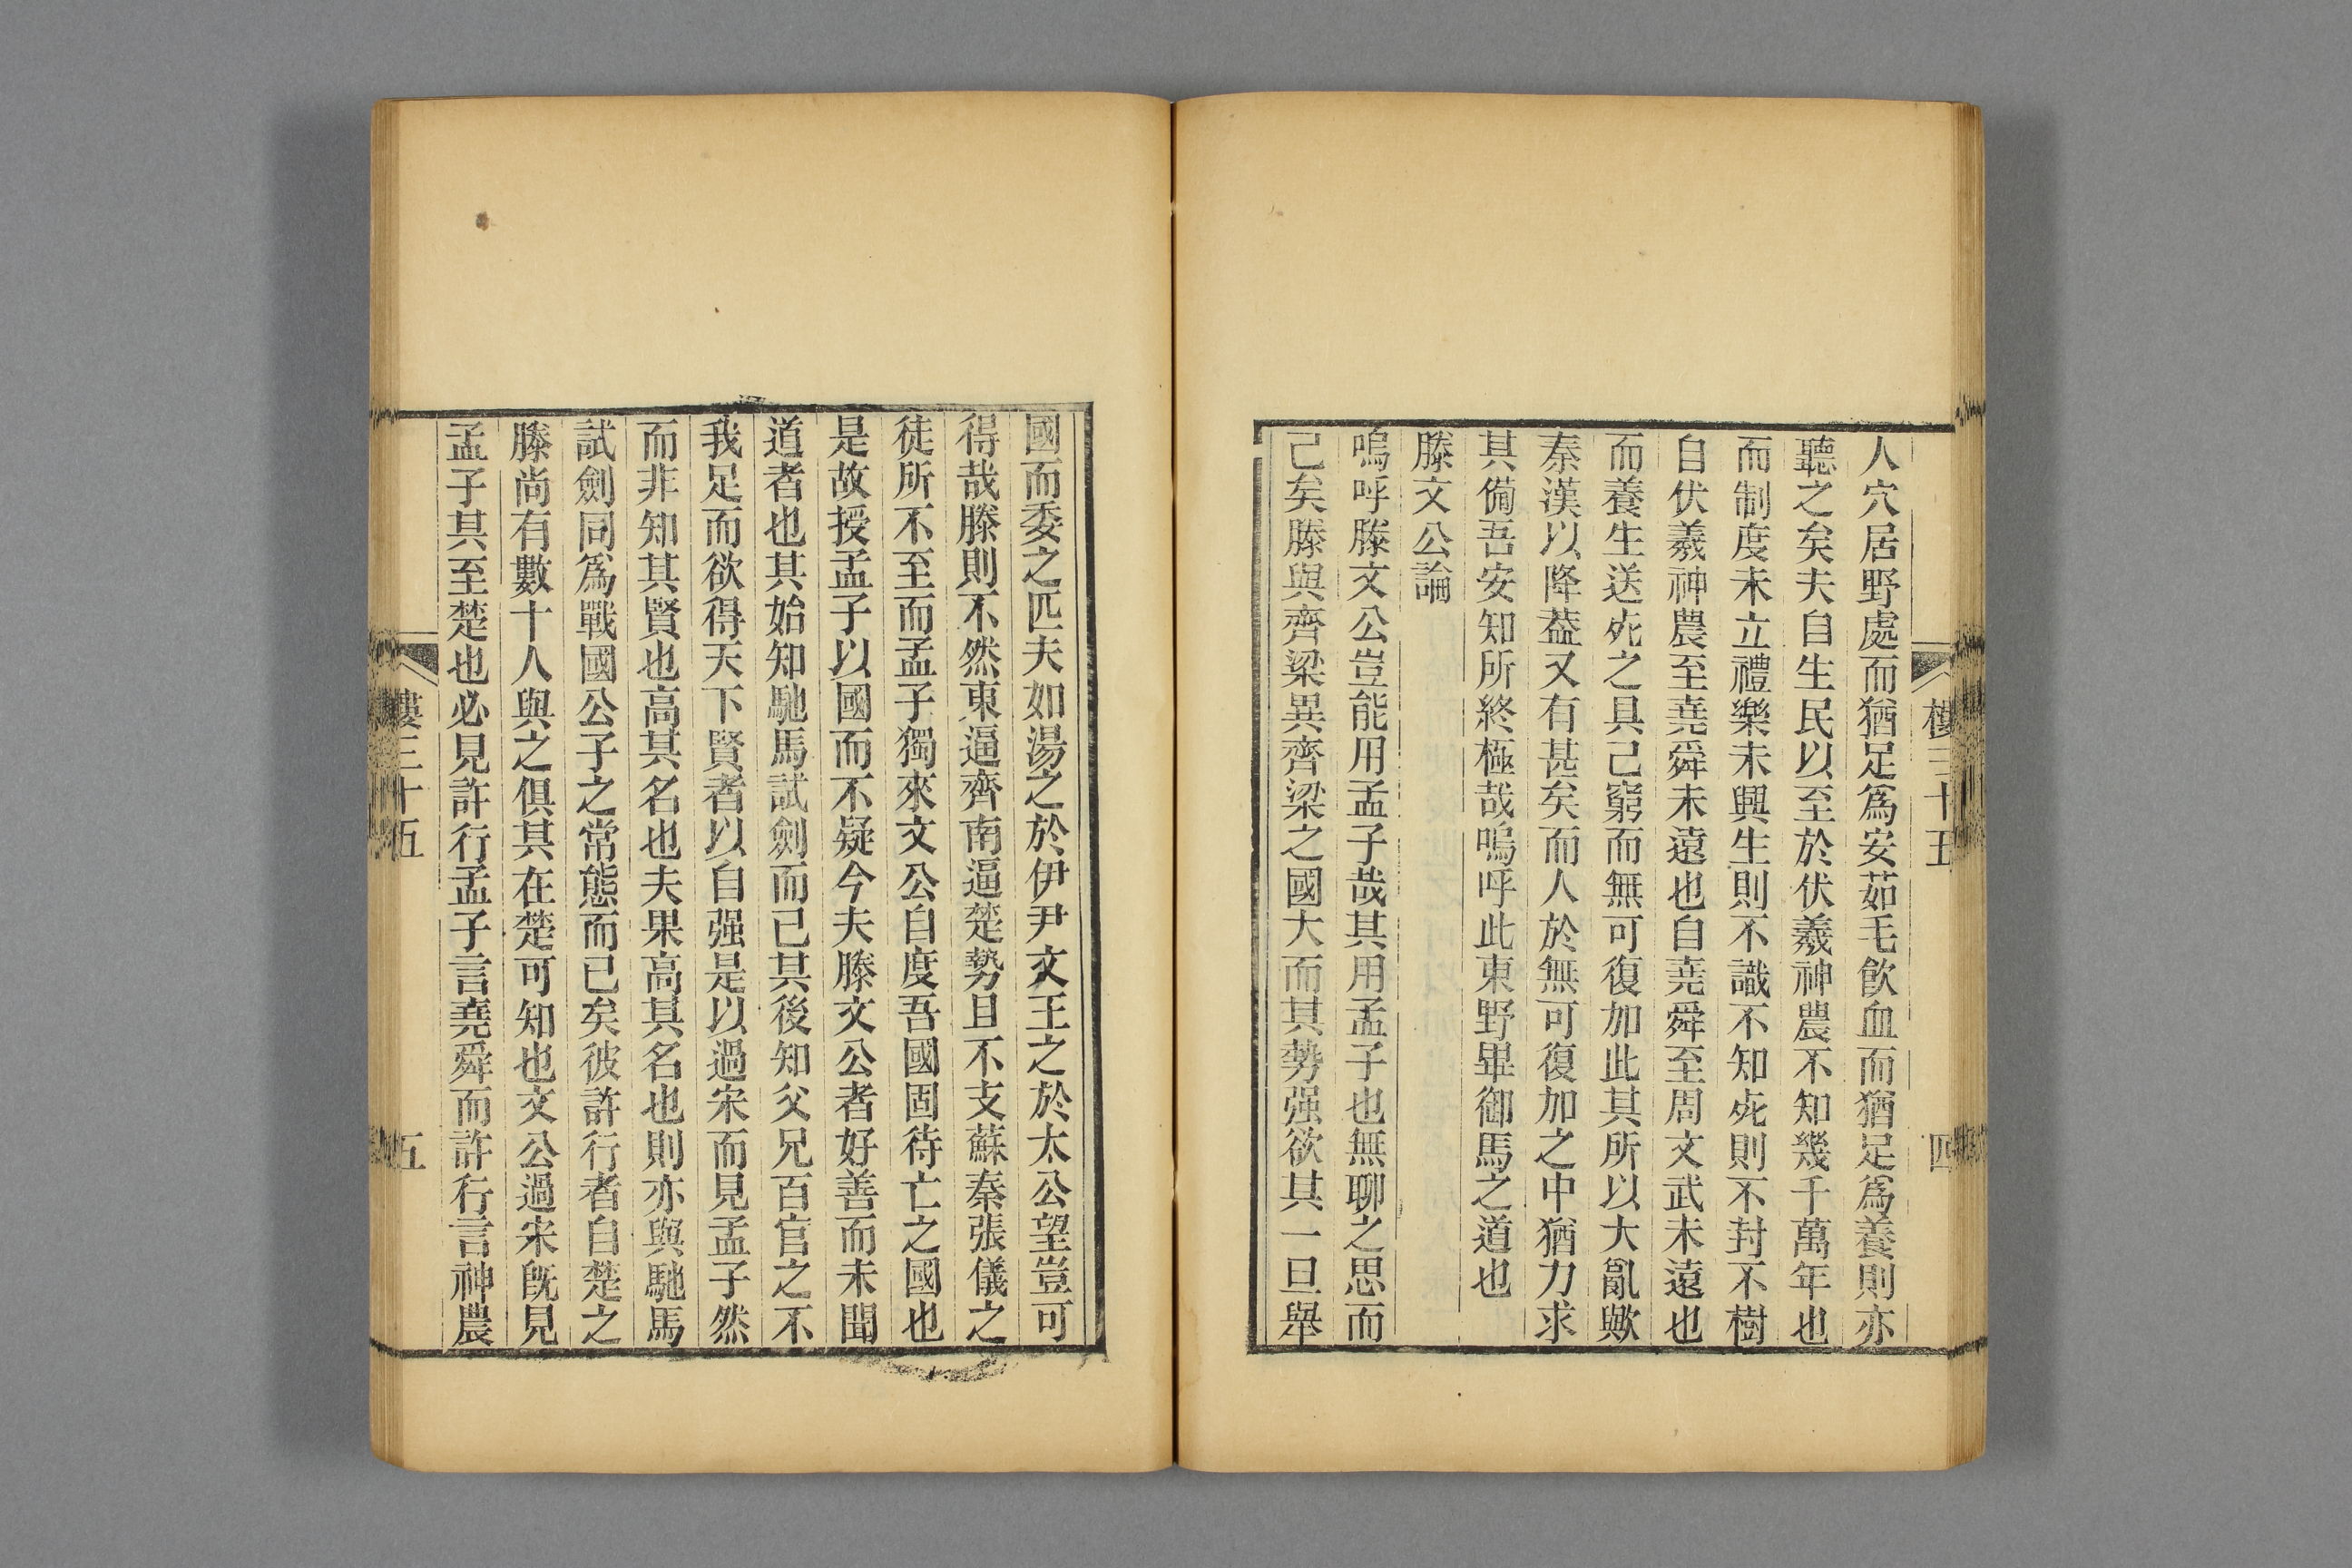 人穴居野處而猶足爲安茹毛飮血而猶足爲養則亦
聽之矣夫自生民以至於伏羲神農不知幾千萬年也
而制度未立禮樂未興生則不識不知死則不封不樹
自伏羲神農至堯舜未遠也自堯舜至周文武未遠也
而養生送死之具已窮而無可復加此其所以大亂歟
秦漢以降葢又有甚矣而人於無可復加之中猶力求
其備吾安知所終極哉嗚呼此東野畢御馬之道也
滕文公論
嗚呼滕文公豈能用孟子哉其用孟子也無聊之思而
已矣滕與齊梁異齊梁之國大而其勢强欲其一旦舉
樓三十五
四
國而委之匹夫如湯之於伊尹文王之於太公望豈可
得哉滕則不然東逼齊南逼楚勢且不支蘇秦張儀之
徒所不至而孟子獨來文公自度吾國固待亡之國也
是故授孟子以國而不疑今夫滕文公者好善而未聞
道者也其始知馳馬試劍而已其後知父兄百官之不
我足而欲得天下賢者以自强是以過宋而見孟子然
而非知其賢也高其名也夫果高其名也則亦與馳馬
試劍同爲戰國公子之常態而已矣彼許行者自楚之
滕尚有數十人與之俱其在楚可知也文公過宋旣見
孟子其至楚也必見許行孟子言堯舜而許行言神農
樓三十五
五